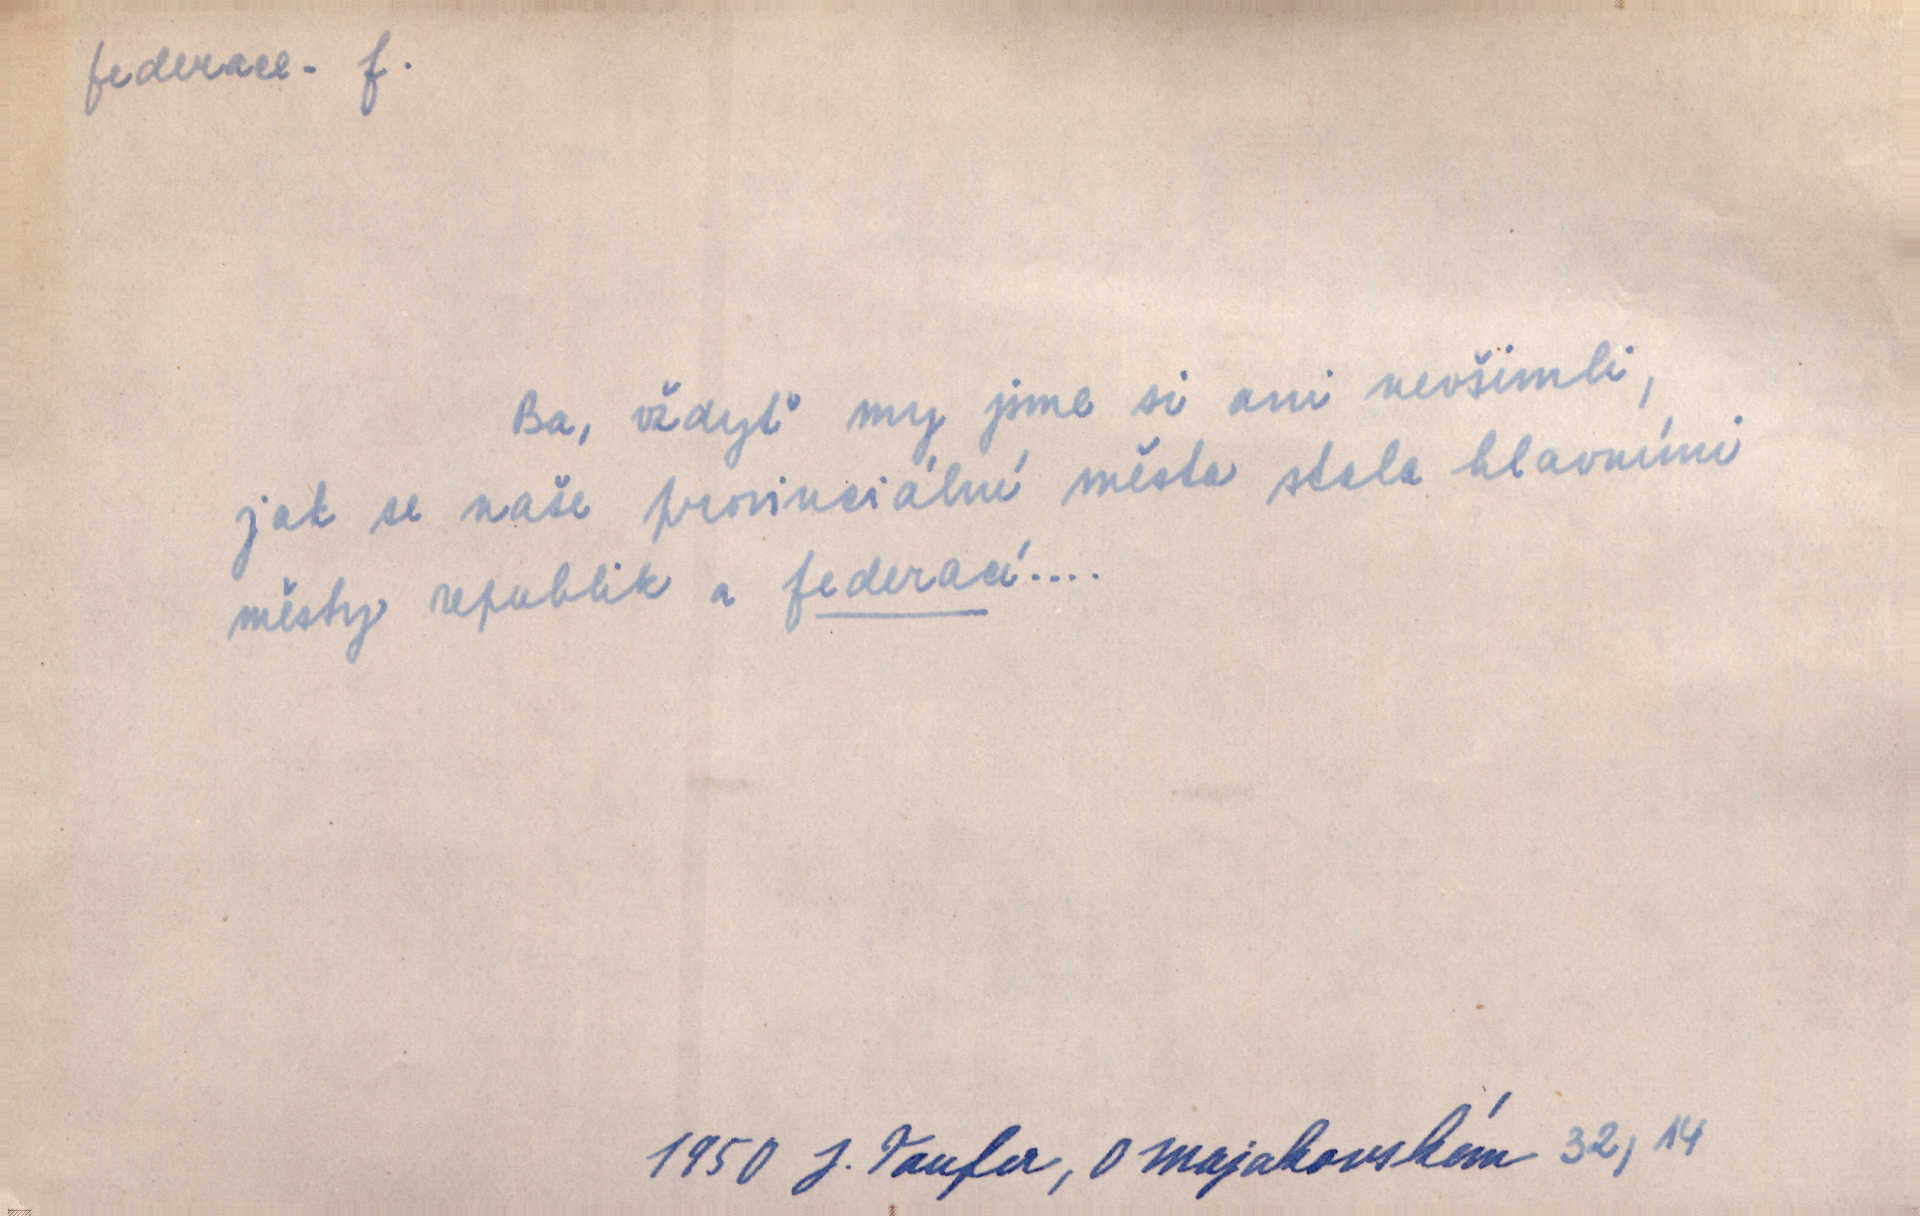 federace - f.
Ba, vždyť my jsme si ani nevšimli,
jak se naše provinciální města stala hlavními
městy republik a federací....
1950 J. Taufer, O Majakovském 32, 14